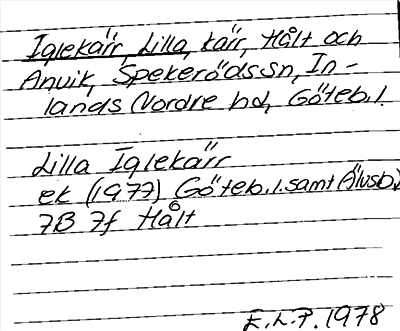 Iglekärr, Lilla, kärr, Hålt och
Anvik, Spekeröds sn, In-
lands Nordre hd, Göteb.l.
Lilla Iglekärr
ek (1977) Göteb.l. samt (Älvsb.)
7B 7f Hålt
E.L.P. 1978